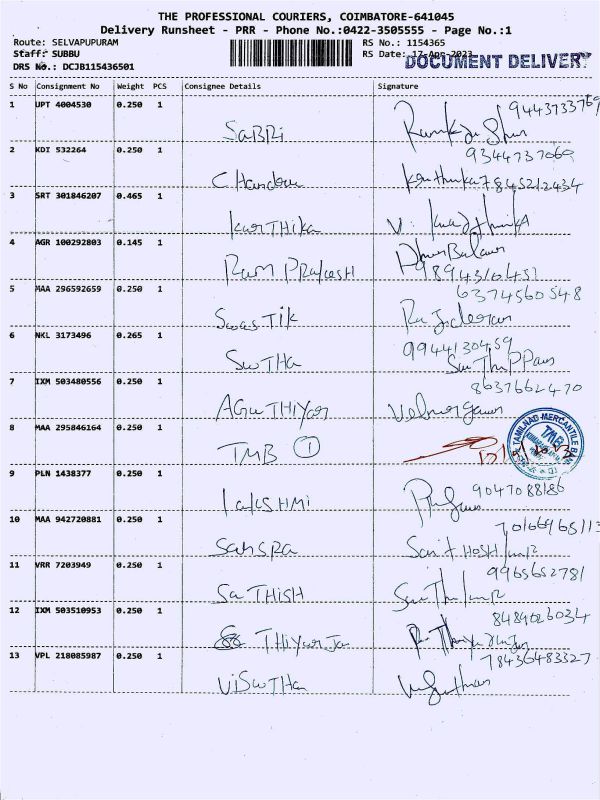 THE PROFESSIONAL COURIERS, COIMBATORE-641045
Delivery Runsheet - PRR - Phone No.:0422-3505555 - Page No.:1
Route: SELVAPUPURAM
RS No.: 1154365
Staff: SUBBU
RS Date: 17-Apr-2023
DOCUMENT DELIVERY
DRS No.: DCJB115436501
S No Consignment No Weight PCS Consignee Details Signature
1 UPT 4004530 0.250 1
9443733769
SaBRi
2 KDI 532264 0.250 1
9344737069
7845212434
3 SRT 301846207 0.465 1
KarTHiKa
4 AGR 100292803 0.145 1
Ram PRaKesH
5 MAA 296592659 0.250 1
6374560548
SwasTik
6 NKL 3173496 0.265 1
9944130459
SwTHa
7 IXM 503480556 0.250 1
8637662470
8 MAA 295846164 0.250 1
TMB 1
TAMILNAD MERCANTILE BANK
TMB
9 PLN 1438377 0.250 1
9047088186
LaKSHMi
10 MAA 942720881 0.250 1
11 VRR 7203949 0.250 1
9965652781
SaTHiSH
12 IXM 503510953 0.250 1
8489026034
13 VPL 218085987 0.250 1
78436483327
ViSwTHa